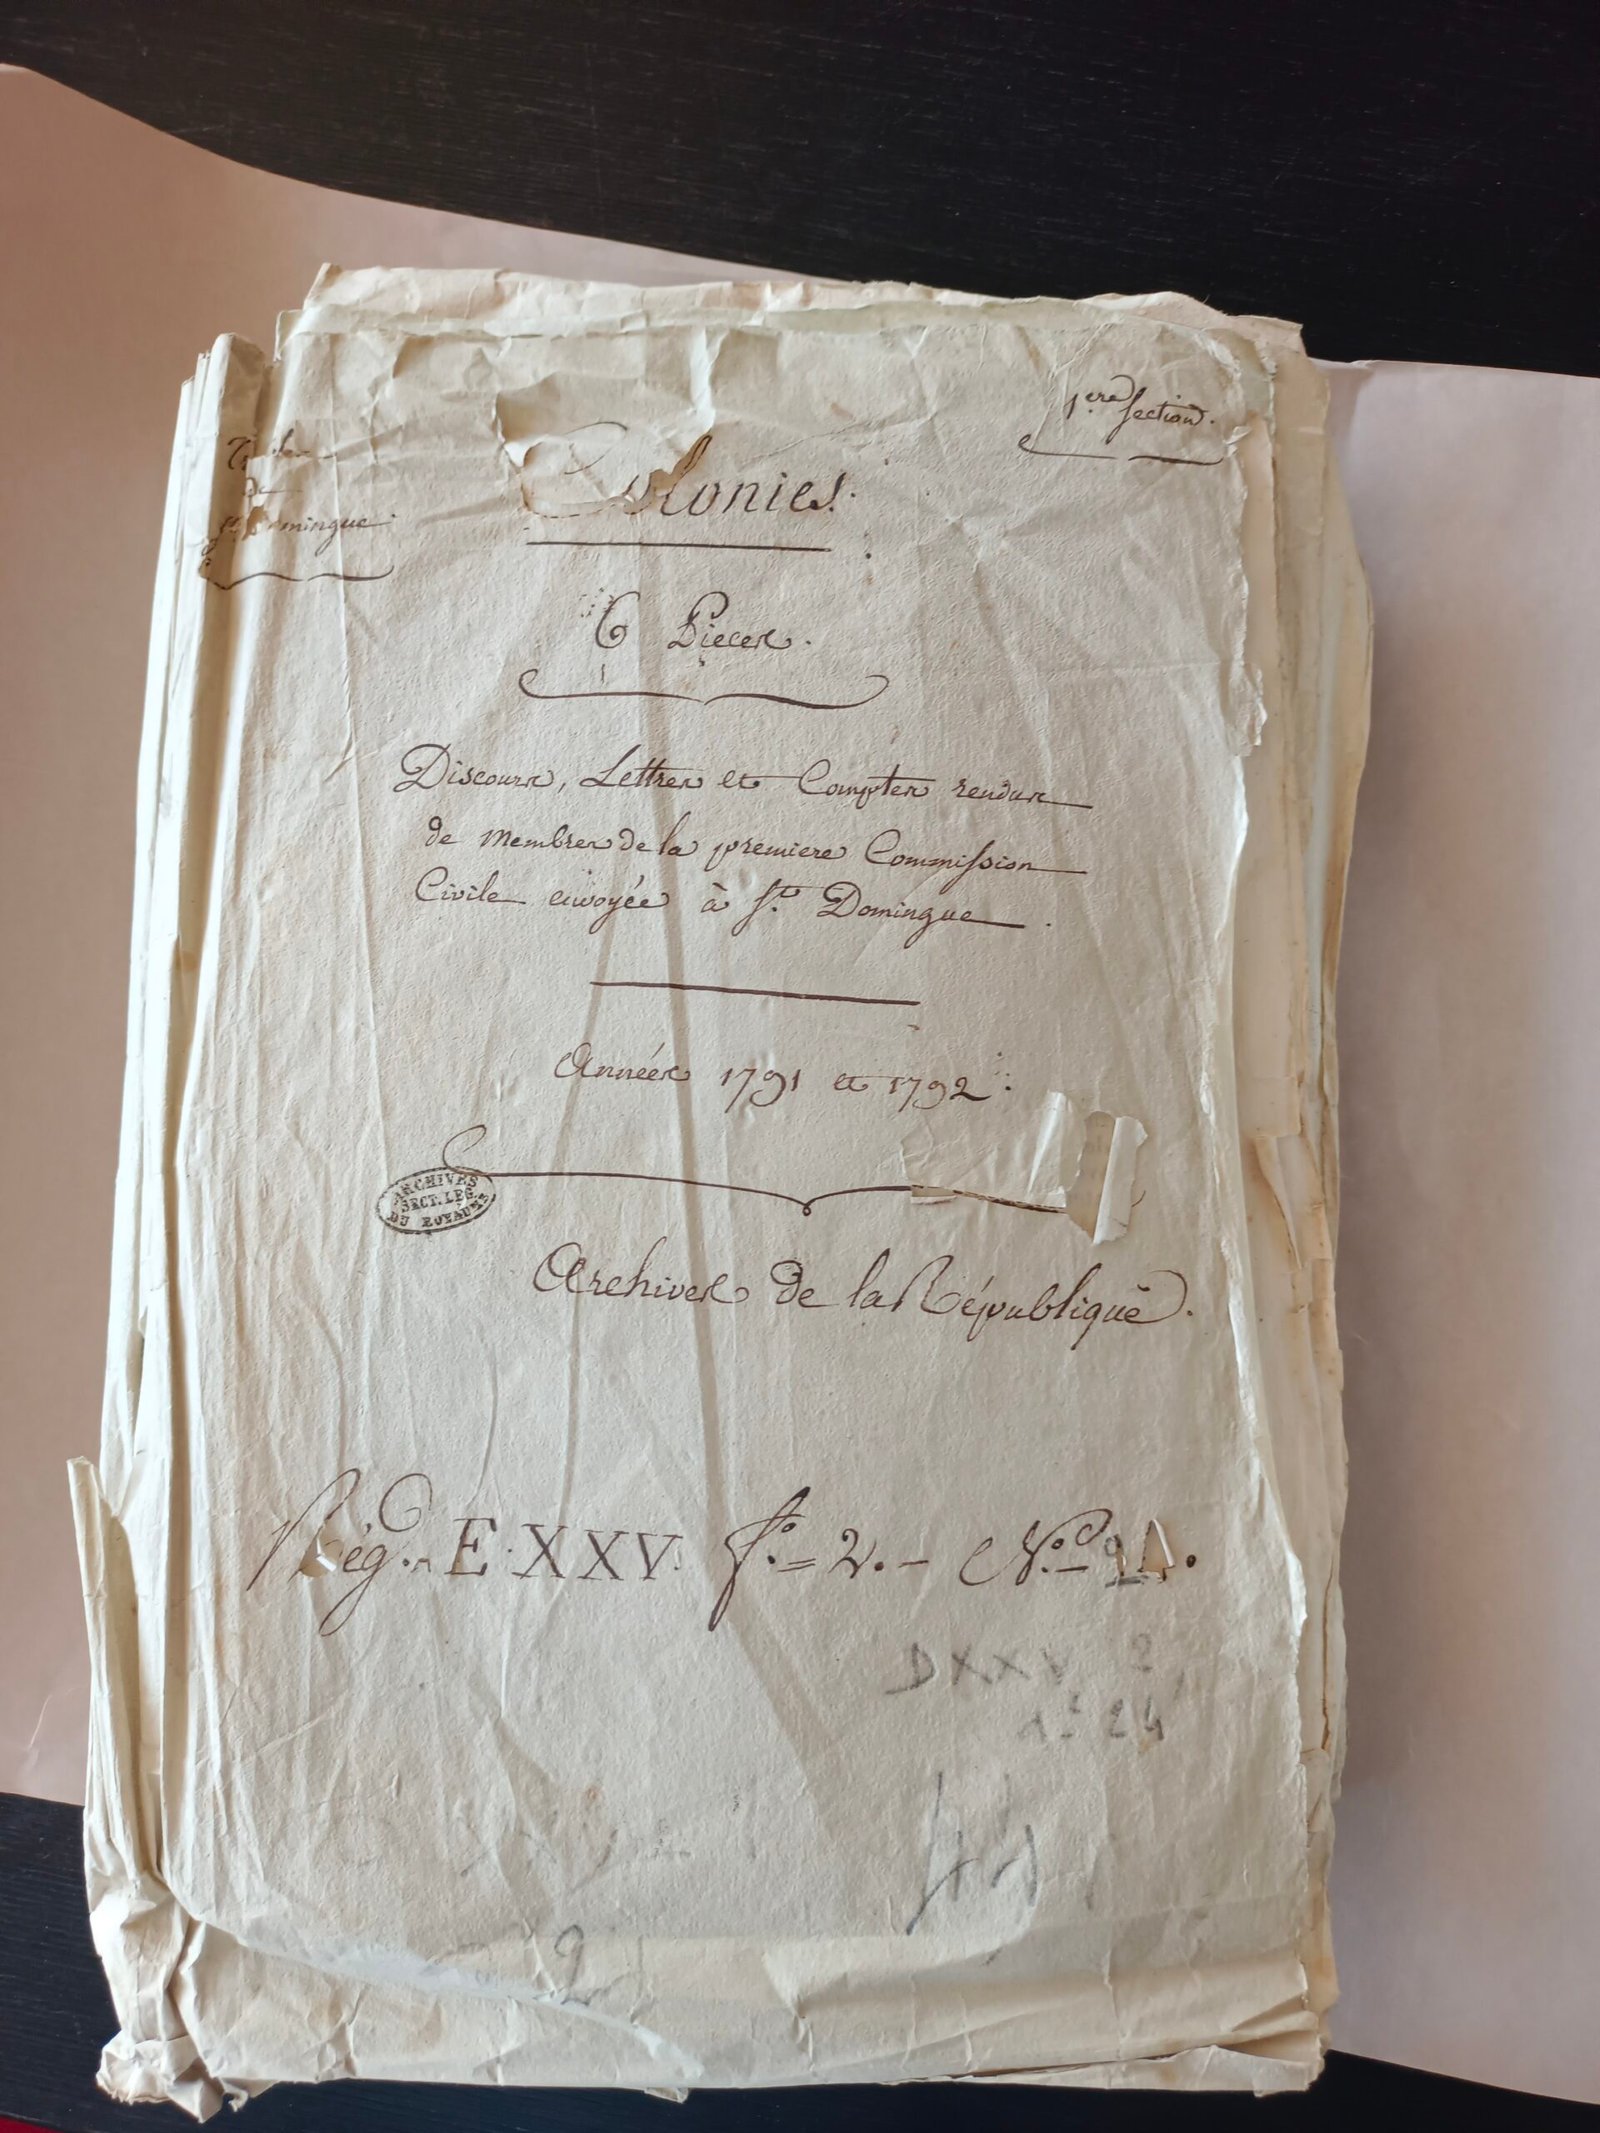 1ere Section.
Colonies.
Domingue
6 Pieces.
Discours, Lettres et Comptes rendus
de Membres de la premiere Commission
Civile envoyée à St. Domingue.
Années 1791 et 1792.
ARCHIVES
SECT. LEG.
DU ROYAUME
Archives de la République.
Rég. E. XXV. f.° = 2. - N.° - 24.
DXXV 2
n° 24
2